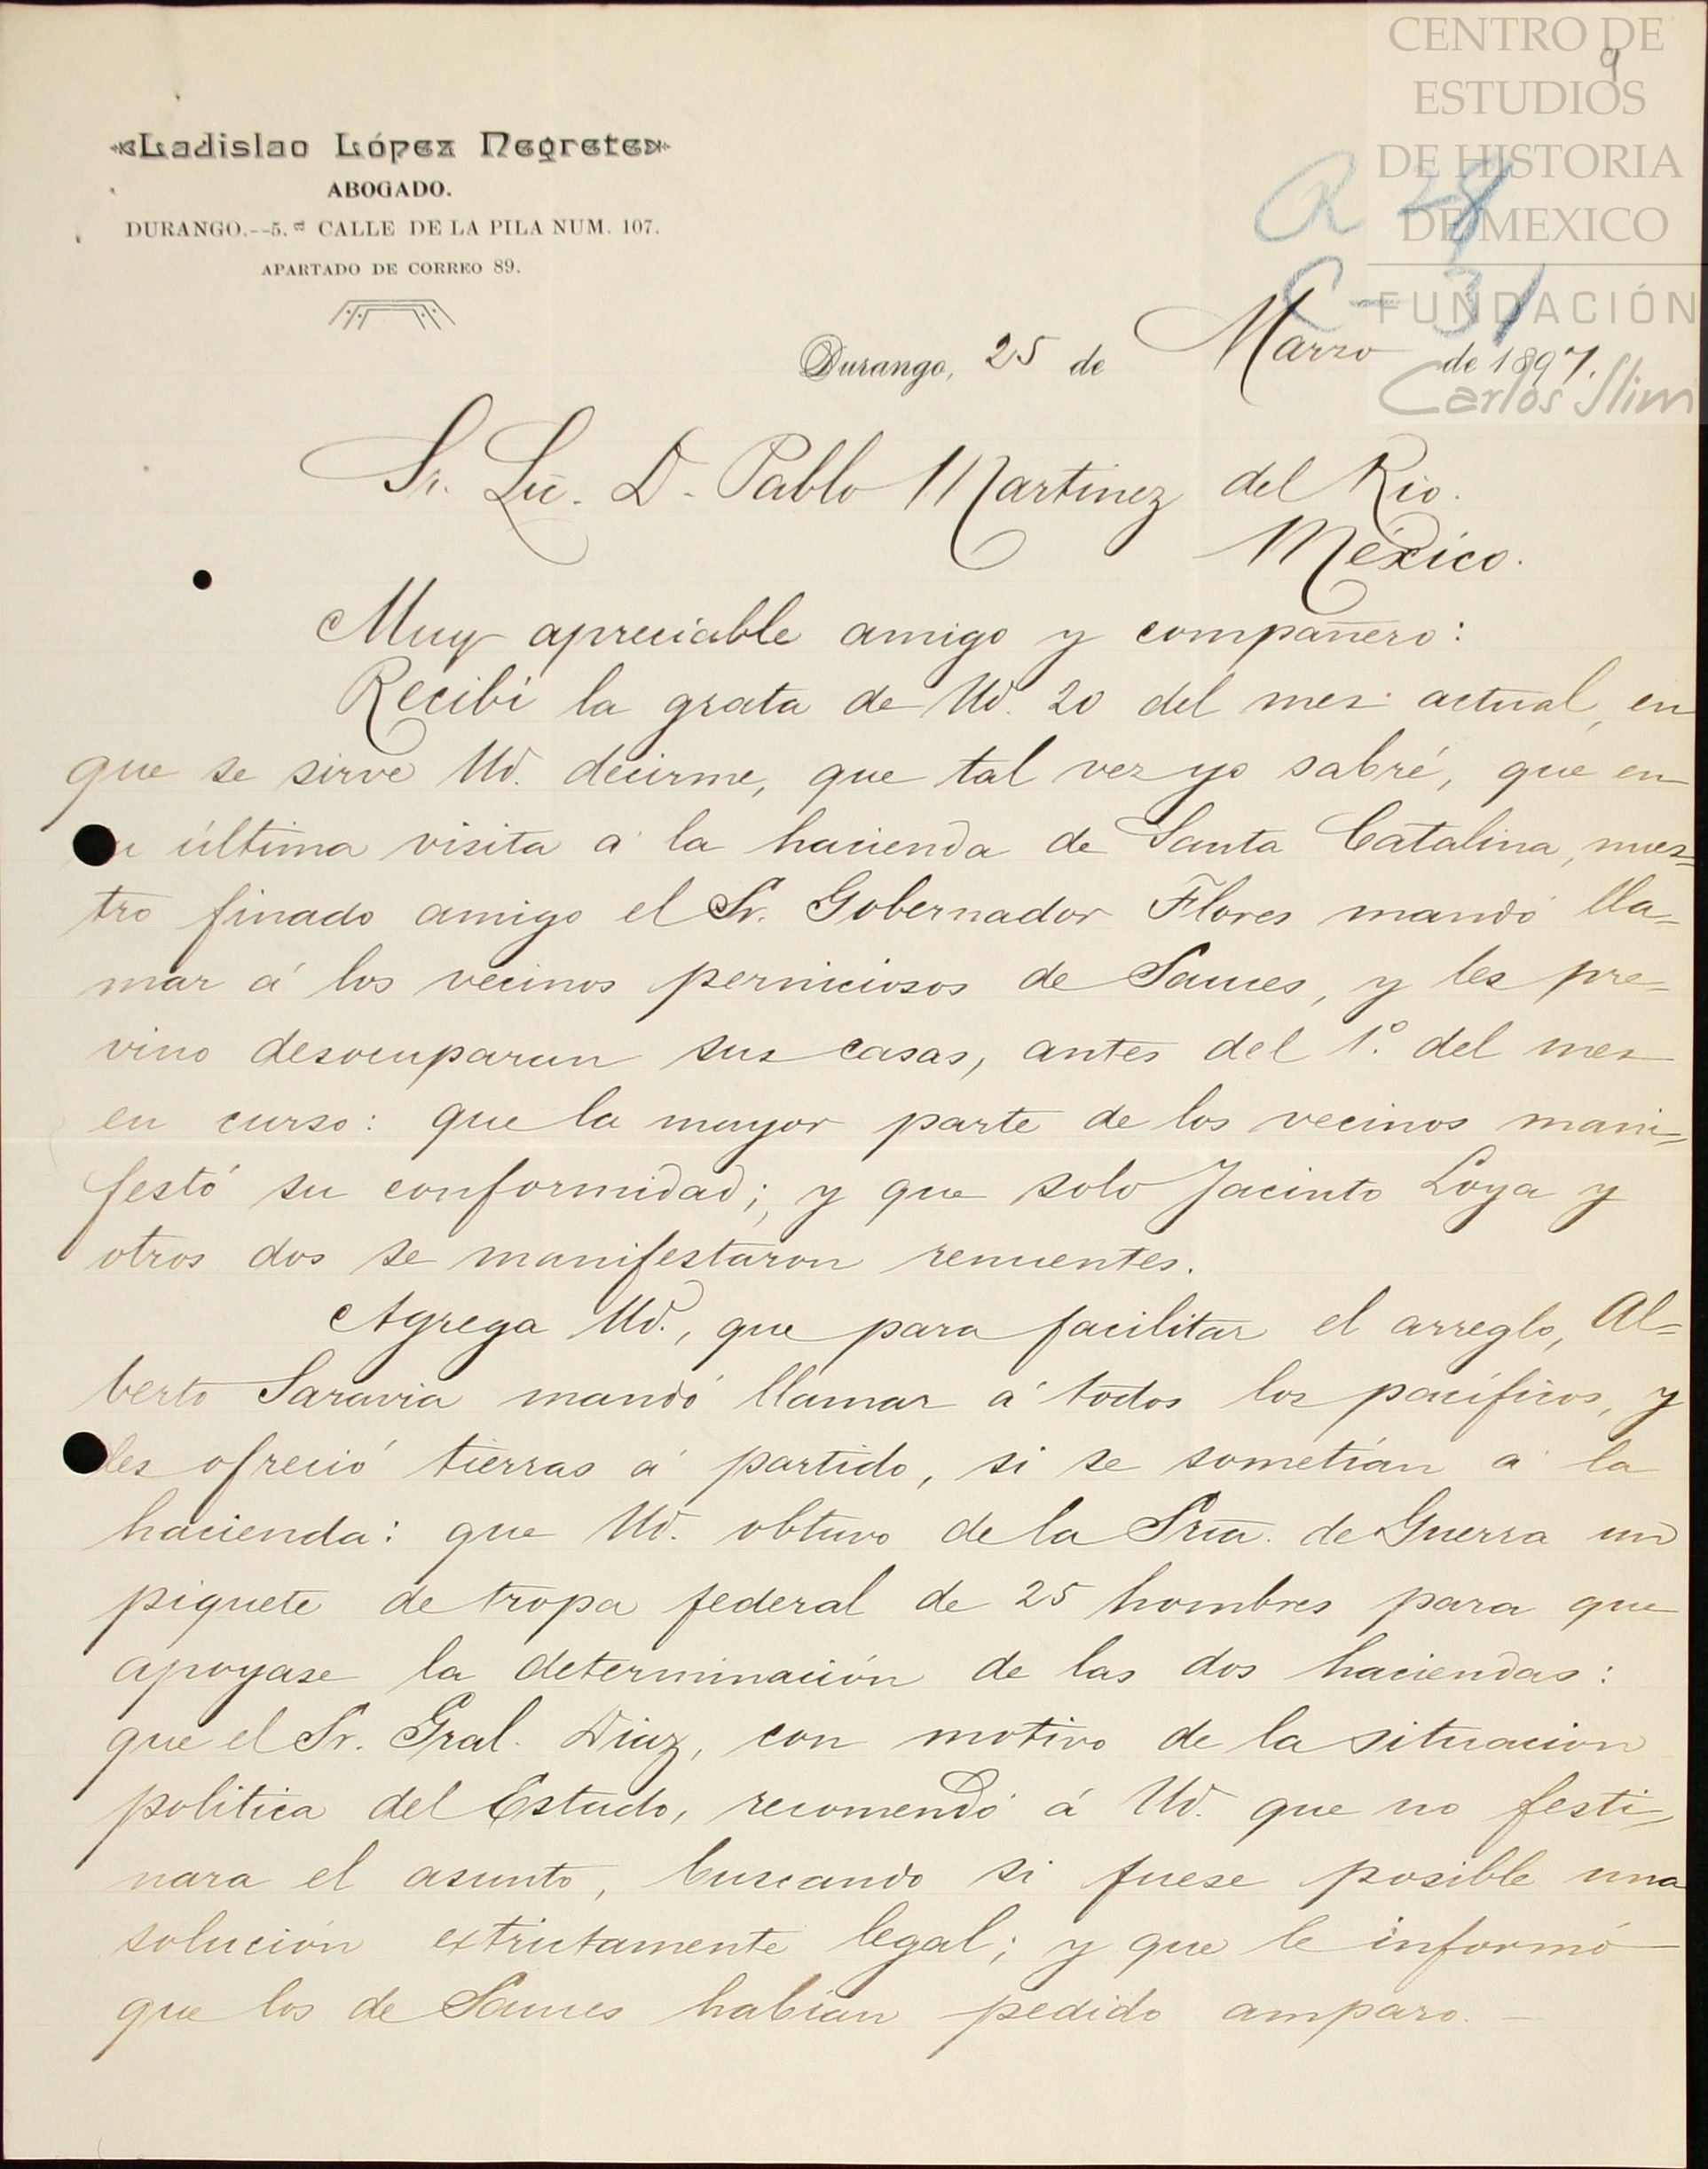 CENTRO DE
ESTUDIOS
DE HISTORIA
DE MEXICO
FUNDACIÓN
Carlos Slim
9
A 28
C-31
Ladislao López Negrete
ABOGADO.
DURANGO.--5.ª CALLE DE LA PILA NUM. 107.
APARTADO DE CORREO 89.
Durango, 25 de Marzo de 1897.
Sr. Lic. D. Pablo Martinez del Rio.
México.
Muy apreciable amigo y compañero:
Recibí la grata de Ud. 20 del mes actual, en
que se sirve Ud. decirme, que tal vez yo sabré, que en
su última visita á la hacienda de Santa Catalina, nues=
tro finado amigo el Sr. Gobernador Flores mandó lla=
mar á los vecinos perniciosos de Sauces, y les pre=
vino desocuparan sus casas, antes del 1º. del mes
en curso: que la mayor parte de los vecinos mani=
festó su conformidad; y que solo Jacinto Loya y
otros dos se manifestaron renuentes.
Agrega Ud., que para facilitar el arreglo, Al=
berto Saravia mandó llamar á todos los pacíficos, y
les ofreció tierras á partido, si se sometían á la
hacienda: que Ud. obtuvo de la Sría. de Guerra un
piquete de tropa federal de 25 hombres para que
apoyase la determinación de las dos haciendas:
que el Sr. Gral. Diaz, con motivo de la situacion
politica del Estado, recomendó á Ud. que no festi=
nara el asunto, buscando si fuese posible una
solución extrictamente legal; y que le informó
que los de Sauces habían pedido amparo. -